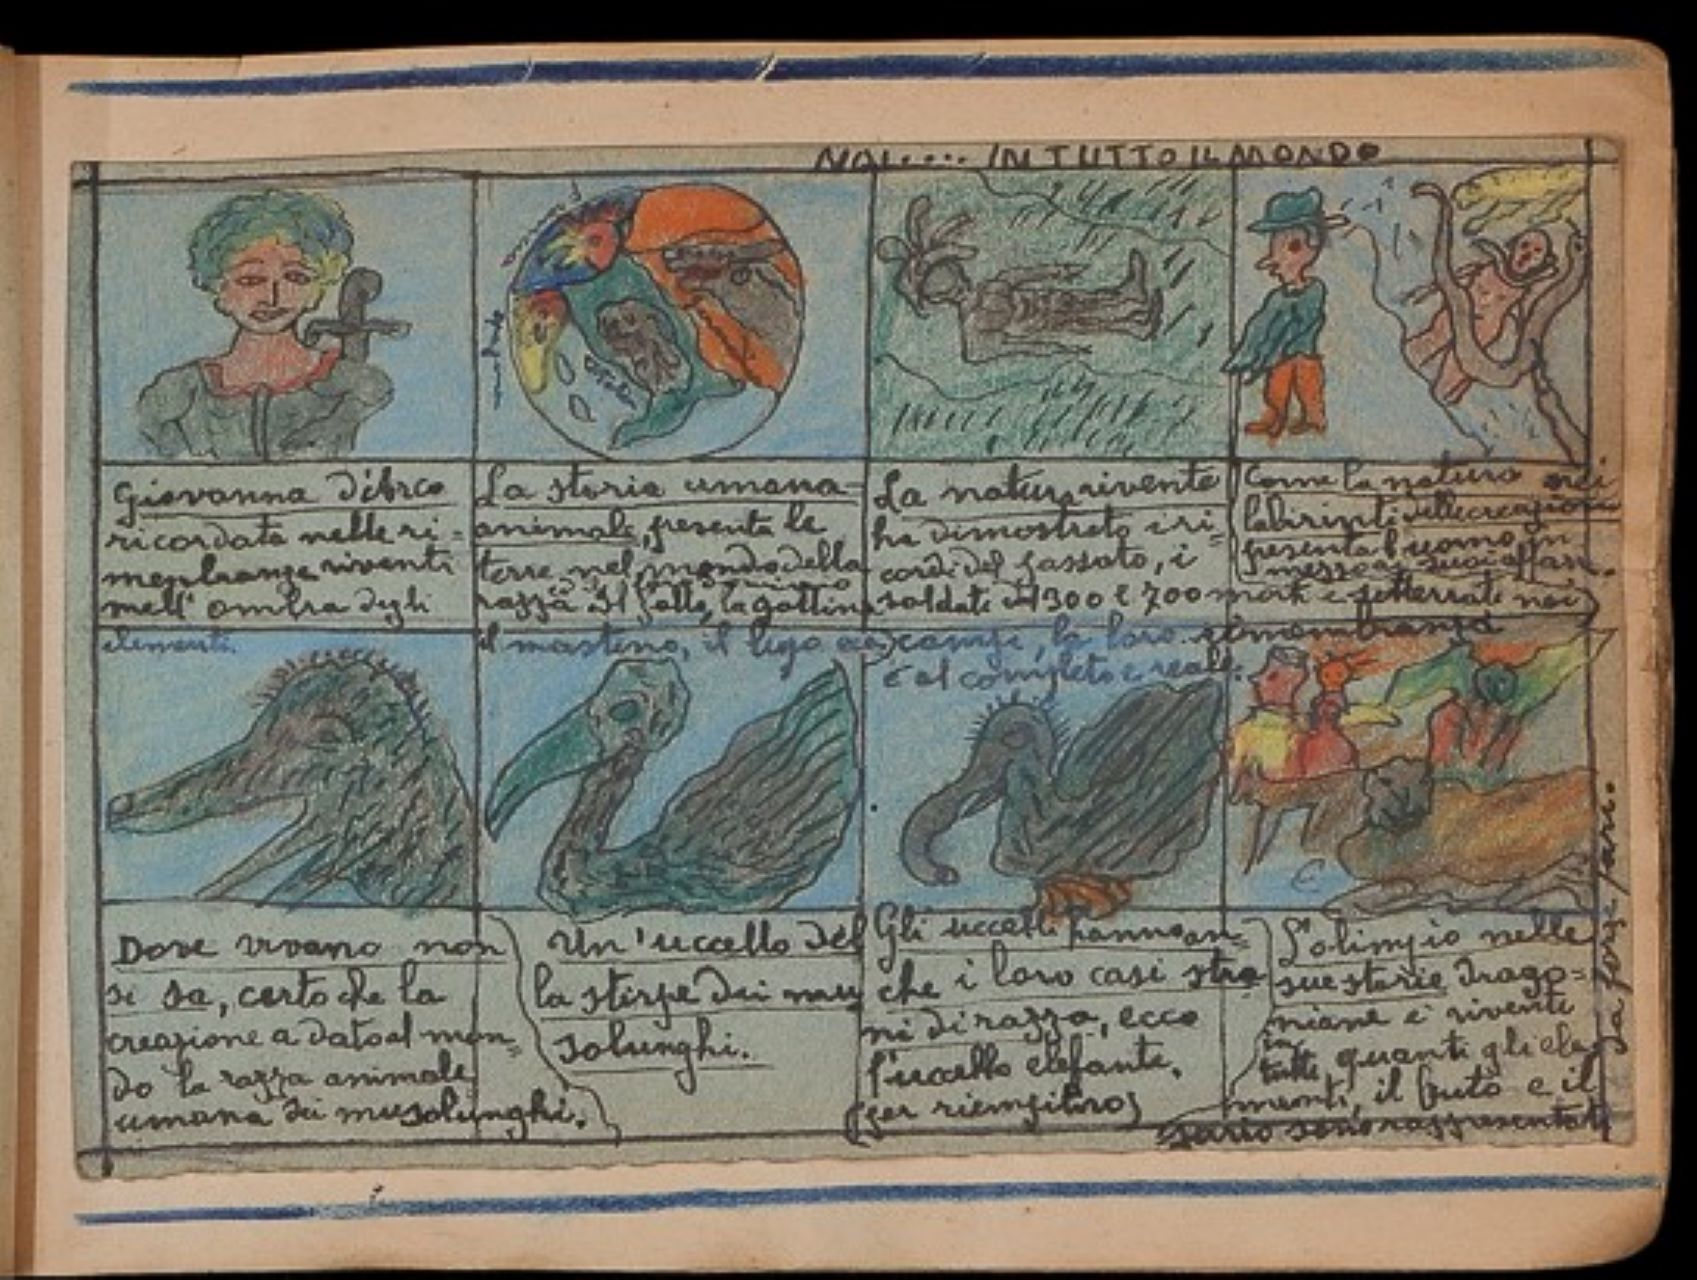 NOI.... IN TUTTO IL MONDO
Giovanna d'Arco
ricordata nelle ri=
menbranze viventi
nell'ombra degli
elementi.
La storia umana=
animale, presenta le
terre nel mondo della
razza il gallo, la gallina
il mastino, il lupo
La natura rivente
ha dimostrato i ri=
cordi del passato, i
soldati del 1300 e 700 morti e sotterrati nei
campi, la loro rimembranza
è al completo e reale.
Come la natura nei
labirinti delle creazioni
presenta l'uomo in
mezzo ai suoi affari.
Dove vivano non
si sa, certo che la
creazione a dato al mon=
do la razza animale
umana dei musolunghi.
Un'uccello del
la stirpe dei mu
solunghi.
Gli uccelli hanno an=
che i loro casi stra
ni di razza, ecco
l'uccello elefante.
(per riempitivo)
L'olimpio nelle
sue storie drago=
niane è rivente
in
tutti quanti gli ele
menti, il bruto e il
serio sono rappresentati